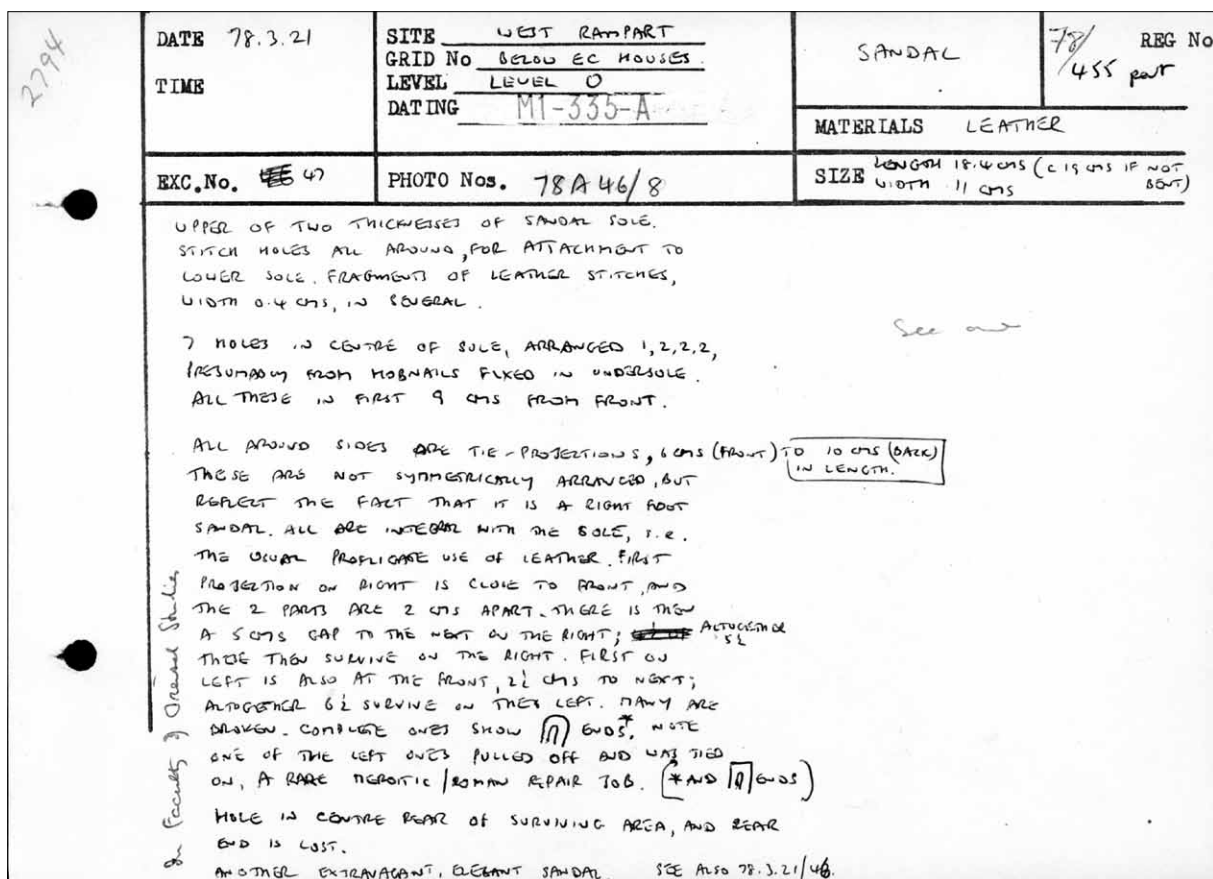 2794
DATE 78.3.21
TIME
SITE WEST RAMPART
GRID No BELOW EC HOUSES.
LEVEL LEVEL O
DATING M1-335-A
SANDAL
78/455 part REG No
MATERIALS LEATHER
EXC.No. 47
PHOTO Nos. 78A46/8
SIZE LENGTH 18.4 CMS (C 19 CMS IF NOT BENT)
WIDTH 11 CMS
UPPER OF TWO THICKNESSES OF SANDAL SOLE.
STITCH HOLES ALL AROUND, FOR ATTACHMENT TO
LOWER SOLE. FRAGMENTS OF LEATHER STITCHES,
WIDTH 0.4 CMS, IN SEVERAL.
See
7 HOLES IN CENTRE OF SOLE, ARRANGED 1,2,2,2,
PRESUMABLY FROM HOBNAILS FIXED IN UNDERSOLE.
ALL THESE IN FIRST 9 CMS FROM FRONT.
ALL AROUND SIDES ARE TIE-PROJECTIONS, 6 CMS (FRONT) TO 10 CMS (BACK)
IN LENGTH.
THESE ARE NOT SYMMETRICALLY ARRANGED, BUT
REFLECT THE FACT THAT IT IS A RIGHT FOOT
SANDAL. ALL ARE INTEGRAL WITH THE SOLE, I.E.
THE USUAL PROFLIGATE USE OF LEATHER. FIRST
PROJECTION ON RIGHT IS CLOSE TO FRONT, AND
THE 2 PARTS ARE 2 CMS APART. THERE IS THEN
A 5 CMS GAP TO THE NEXT ON THE RIGHT; ALTOGETHER
5½
THESE THEN SURVIVE ON THE RIGHT. FIRST ON
LEFT IS ALSO AT THE FRONT, 2½ CMS TO NEXT;
ALTOGETHER 6½ SURVIVE ON THE LEFT. MANY ARE
BROKEN. COMPLETE ONES SHOW ENDS*. NOTE
ONE OF THE LEFT ONES PULLED OFF AND WAS TIED
ON, A RARE MEROITIC/ROMAN REPAIR JOB. (*AND ENDS)
HOLE IN CENTRE REAR OF SURVIVING AREA, AND REAR
END IS LOST.
ANOTHER EXTRAVAGANT, ELEGANT SANDAL. SEE ALSO 78.3.21/46.
In Faculty of Oriental Studies